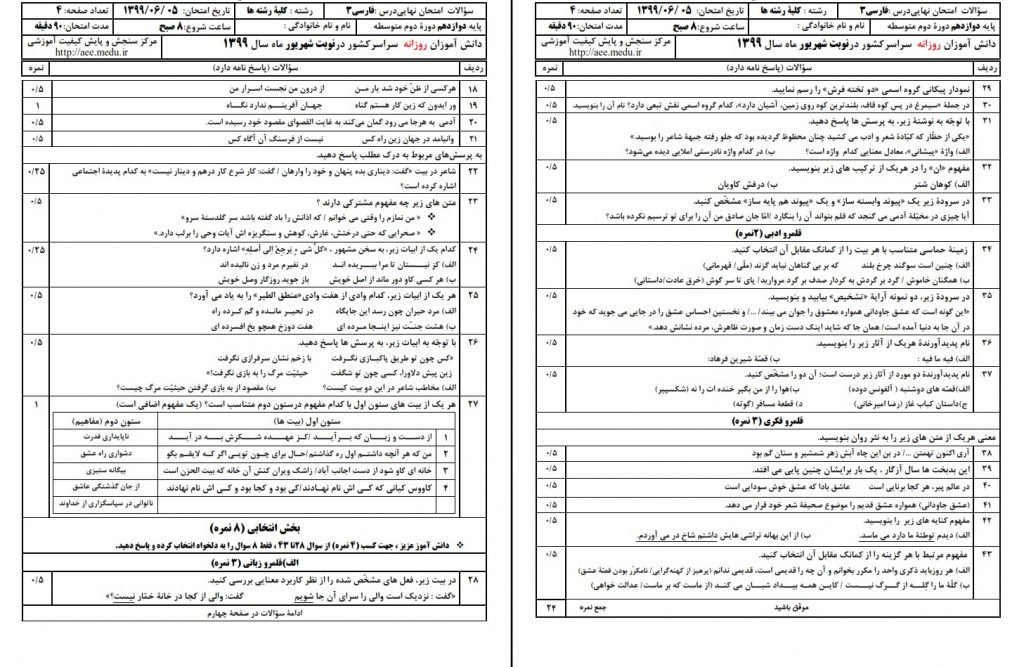 سؤالات امتحان نهایی درس: فارسی۳
رشته : کلیۀ رشته ها
تاریخ امتحان: ۰۵ /۰۶ /۱۳۹۹
تعداد صفحه: ۴
پایه دوازدهم دورۀ دوم متوسطه
نام و نام خانوادگی :
ساعت شروع: ۸ صبح
مدت امتحان: ۹۰ دقیقه
دانش آموزان روزانه سراسر کشور در نوبت شهریور ماه سال ۱۳۹۹
مرکز سنجش و پایش کیفیت آموزشی
http://aee.medu.ir
ردیف
سؤالات (پاسخ نامه دارد)
نمره
۱۸ هرکسی از ظنّ خود شد یار من از درون من نجست اسرار من ۰/۵
۱۹ ور ایدون که زین کار هستم گناه جهان آفرینم ندارد نگاه ۱
۲۰ آدمی به هرجا می رود گمان می‌کند به غایت القصوای مقصود خود رسیده است. ۰/۵
۲۱ وانیامد در جهان زین راه کس نیست از فرسنگ آن آگاه کس ۰/۵
به پرسش‌های مربوط به درک مطلب پاسخ دهید.
۲۲ شاعر در بیت «گفت: دیناری بده پنهان و خود را وارهان / گفت: کار شرع کار درهم و دینار نیست» به کدام پدیدۀ اجتماعی ۰/۲۵
اشاره کرده است؟
۲۳ متن های زیر چه مفهوم مشترکی دارند ؟ ۰/۵
❖ « من نمازم را وقتی می خوانم / که اذانش را باد گفته باشد سر گلدستۀ سرو»
❖ « صحرایی که حتی درختش، غارش، کوهش و سنگریزه اش آیات وحی را برلب دارد.»
۲۴ کدام یک از ابیات زیر، به سخن مشهور ، «کلُّ شیءٍ یَرجِعُ إلی أصلِهِ» اشاره دارد؟ ۰/۲۵
الف) کز نیستان تا مرا ببریده اند در نفیرم مرد و زن نالیده اند
ب) هر کسی کاو دور ماند از اصل خویش باز جوید روزگار وصل خویش
۲۵ هر یک از ابیات زیر، کدام وادی از هفت وادی «منطق الطیر» را به یاد می آورد؟ ۰/۵
الف) مرد حیران چون رسد این جایگاه در تحیر مانده و گم کرده راه
ب) هشت جنّت نیز اینجا مرده ای هفت دوزخ همچو یخ افسرده ای
۲۶ با توجّه به ابیات زیر، به پرسش ها پاسخ دهید. ۰/۵
«کس چون تو طریق پاکبازی نگرفت با زخم نشان سرفرازی نگرفت
زین پیش دلاورا، کسی چون تو شگفت حیثیّت مرگ را به بازی نگرفت!»
الف) مخاطب شاعر در این دو بیت کیست؟ ب) مقصود از به بازی گرفتن حیثیّت مرگ چیست؟
۲۷ هر یک از بیت های ستون اول با کدام مفهوم درستون دوم متناسب است؟ (یک مفهوم اضافی است) ۱
ستون اول (بیت ها) ستون دوم (مفاهیم)
۱ از دست و زبان که برآید /کز عهده شکرش به در آید ناپایداری قدرت
۲ من که هر آنچه داشتم اول ره گذاشتم/حال برای چون تویی اگر که لایقم بگو دشواری راه عشق
۳ خانه ای کاو شود از دست اجانب آباد/ زاشک ویران کنش آن خانه که بیت الحزن است بیگانه ستیزی
۴ کاووس کیانی که کی اش نام نهادند/کی بود و کجا بود و کی اش نام نهادند از جان گذشتگی عاشق
ناتوانی در سپاسگزاری از خداوند
بخش انتخابی (۸ نمره)
❖ دانش آموز عزیز ، جهت کسب (۴ نمره) از سوال ۲۸ تا ۴۳ ، فقط ۸ سوال را به دلخواه انتخاب کرده و پاسخ دهید.
الف)قلمرو زبانی (۳ نمره)
۲۸ در بیت زیر، فعل های مشخّص شده را از نظر کاربرد معنایی بررسی کنید. ۰/۵
«گفت : نزدیک است والی را سرای آن جا شویم گفت: والی از کجا در خانۀ خمّار نیست؟»
ادامۀ سؤالات در صفحۀ چهارم
سؤالات امتحان نهایی درس: فارسی۳
رشته : کلیۀ رشته ها
تاریخ امتحان: ۰۵ /۰۶ /۱۳۹۹
تعداد صفحه: ۴
پایه دوازدهم دورۀ دوم متوسطه
نام و نام خانوادگی :
ساعت شروع: ۸ صبح
مدت امتحان: ۹۰ دقیقه
دانش آموزان روزانه سراسر کشور در نوبت شهریور ماه سال ۱۳۹۹
مرکز سنجش و پایش کیفیت آموزشی
http://aee.medu.ir
ردیف
سؤالات (پاسخ نامه دارد)
نمره
۲۹ نمودار پیکانی گروه اسمی «دو تخته فرش» را رسم نمایید. ۰/۵
۳۰ در جملۀ «سیمرغ در پس کوه قاف، بلندترین کوه روی زمین، آشیان دارد»، کدام گروه اسمی نقش تبعی دارد؟ نام آن را بنویسید. ۰/۵
۳۱ با توجه به نوشتۀ زیر، به پرسش ها پاسخ دهید. ۰/۵
«یکی از حظّار که کبّادۀ شعر و ادب می کشید چنان محظوظ گردیده بود که جلو رفته جبهۀ شاعر را بوسید.»
الف) واژۀ «پیشانی»، معادل معنایی کدام واژه است؟ ب) در کدام واژه نادرستی املایی دیده می‌شود؟
۳۲ مفهوم «ان» را در هریک از ترکیب های زیر بنویسید. ۰/۵
الف) کوهان شتر ب) درفش کاویان
۳۳ در سرودۀ زیر یک «پیوند وابسته ساز» و یک «پیوند هم پایه ساز» مشخّص کنید. ۰/۵
آیا چیزی در مخیّلۀ آدمی می گنجد که قلم بتواند آن را بنگارد /امّا جان صادق من آن را برای تو ترسیم نکرده باشد؟
قلمرو ادبی (۲نمره)
۳۴ زمینۀ حماسی متناسب با هر بیت را از کمانک مقابل آن انتخاب کنید. ۰/۵
الف) چنین است سوگند چرخ بلند که بر بی گناهان نیاید گزند (ملّی/ قهرمانی)
ب) همگنان خاموش / گرد بر گردش به کردار صدف بر گرد مروارید/ پای تا سر گوش (خرق عادت/داستانی)
۳۵ در سرودۀ زیر، دو نمونه آرایۀ «تشخیص» بیابید و بنویسید. ۰/۵
«این گونه است که عشق جاودانی همواره معشوق را جوان می بیند/ .../ و نخستین احساس عشق را در جایی می جوید که خود
در آن جا به دنیا آمده است/ همان جا که شاید اینک دست زمان و صورت ظاهرش، مرده نشانش دهد.»
۳۶ نام پدیدآورندۀ هریک از آثار زیر را بنویسید. ۰/۵
الف) فیه ما فیه : ب) قصّۀ شیرین فرهاد:
۳۷ نام پدیدآورندۀ دو مورد از آثار زیر درست است؛ آن دو را مشخّص کنید. ۰/۵
الف)قصّه های دوشنبه ( آلفونس دوده) ب)هوا را از من بگیر خنده ات را نه (شکسپیر)
ج)داستان کباب غاز (رضا امیرخانی) د) قطعۀ مسافر (گوته)
قلمرو فکری (۳ نمره)
معنی هریک از متن های زیر را به نثر روان بنویسید.
۳۸ آری اکنون تهمتن .../ در بن این چاه آبش زهر شمشیر و سنان گم بود ۰/۵
۳۹ این بدبخت ها سال آزگار ، یک بار برایشان چنین پایی می افتد. ۰/۵
۴۰ در عالم پیر، هر کجا برنایی است عاشق بادا که عشق خوش سودایی است ۰/۵
۴۱ (عشق جاودانی) همواره عشق قدیم را موضوع صحیفۀ شعر خود قرار می دهد. ۰/۵
۴۲ مفهوم کنایه های زیر را بنویسید. ۰/۵
الف) دیدم توطئۀ ما دارد می ماسد. ب) از این بهانه تراشی هایش داشتم شاخ در می آوردم.
۴۳ مفهوم مرتبط با هر گزینه را از کمانک مقابل آن انتخاب کنید. ۰/۵
الف) هر روزباید ذکری واحد را مکرر بخوانم و آن چه را قدیمی است، قدیمی ندانم (پرهیز از کهنه‌گرایی/ نامکرّر بودن قصّۀ عشق)
ب) گلّۀ ما را گله از گرگ نیست / کاین همه بیداد شبان می کند (از ماست که بر ماست/ عدالت خواهی)
جمع نمره ۲۴
موفّق باشید